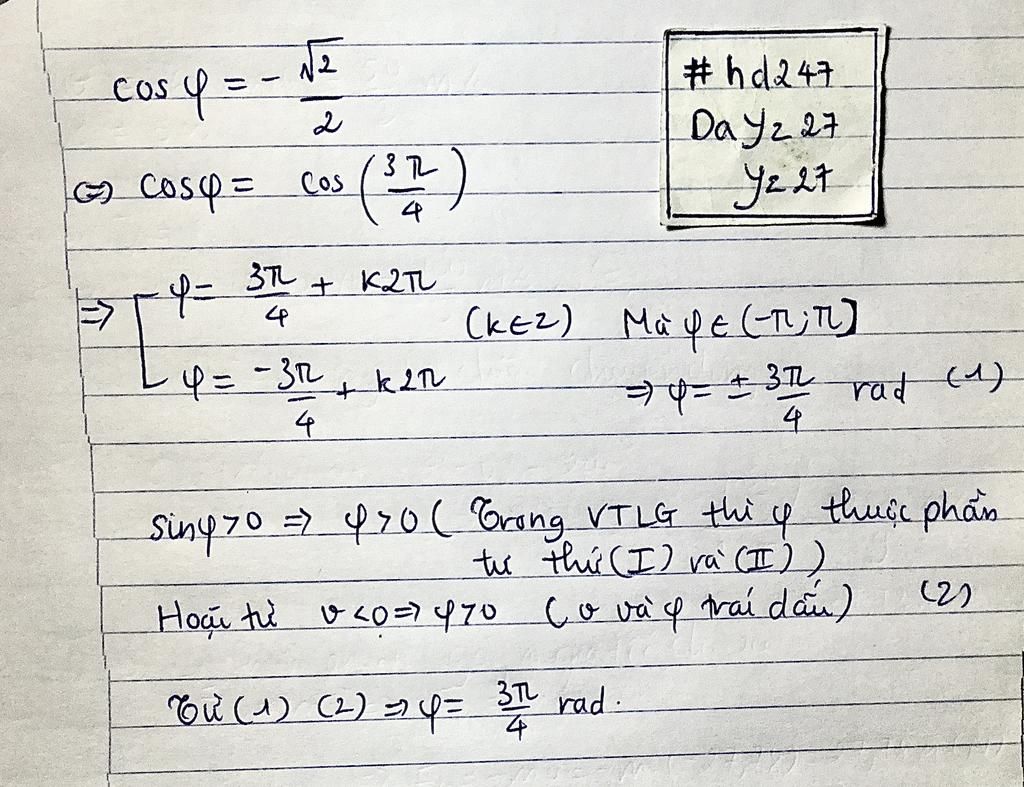 cos φ = - √2/2
⇔ cosφ = cos (3π/4)
#hd247
Da Yz 27
Yz 27
⇒ [ φ = 3π/4 + k2π
φ = -3π/4 + k2π
(k∈Z) Mà φ ∈ (-π; π]
⇒ φ = ± 3π/4 rad (1)
sinφ>0 ⇒ φ>0 ( Trong VTLG thì φ thuộc phần
tư thứ (I) và (II) )
Hoặc từ v<0 ⇒ φ>0 (v và φ trái dấu) (2)
Từ (1) (2) ⇒ φ = 3π/4 rad.